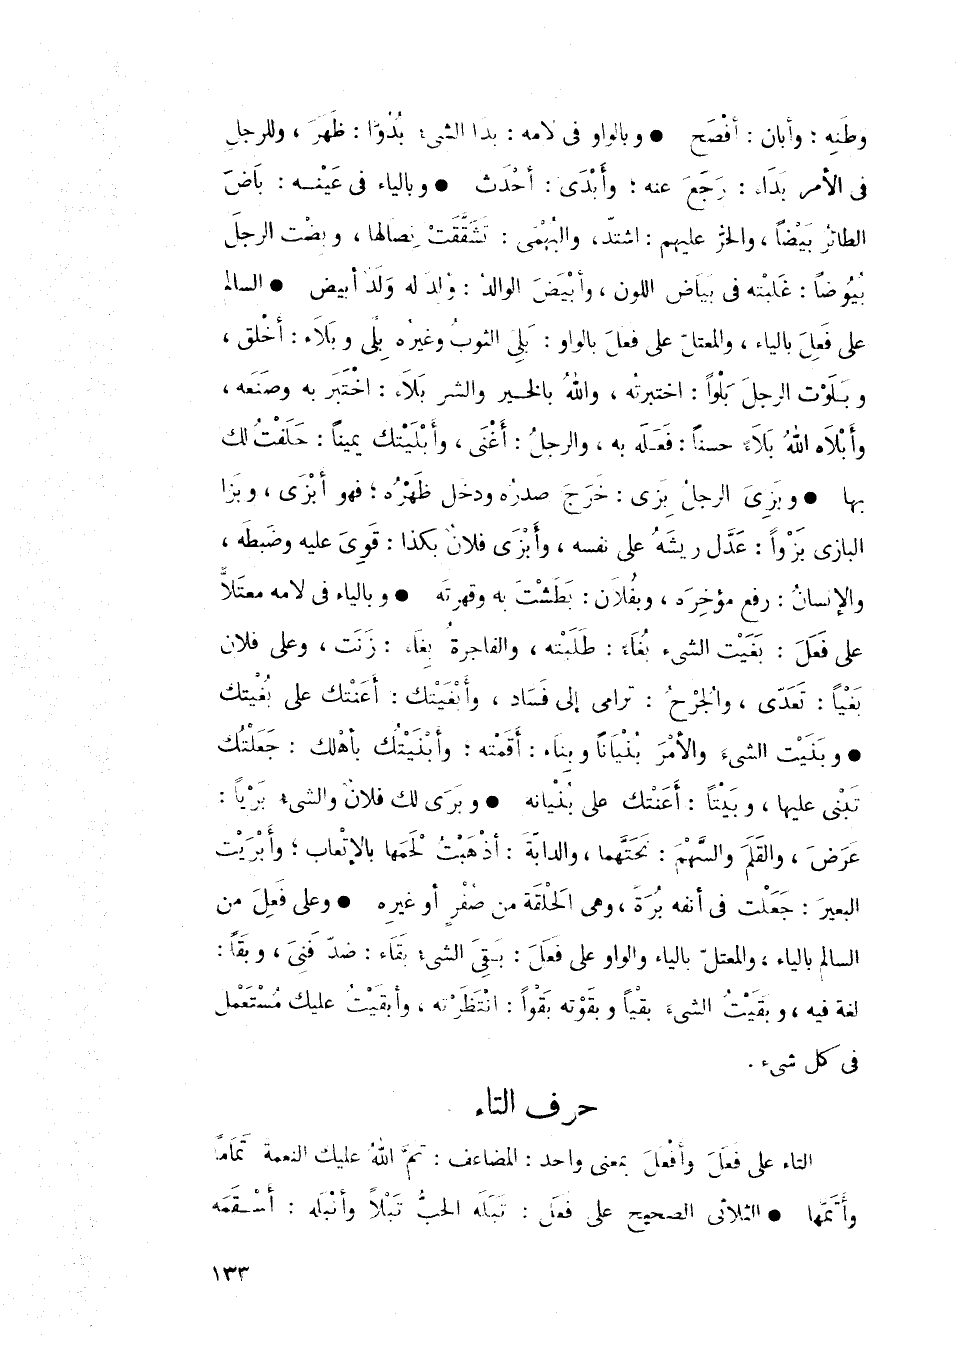 وطَنِه ؛ وأبان : أفْصَح ● وبالواو فى لامه : بدَا الشىء بُدُوًّا : ظَهَرَ ، وللرجلِ
فى الأمر بَدَاء : رَجَعَ عنه ؛ وأَبْدَى : أحْدَث ● وبالياء فى عَيْنـه : بَاضَ
الطائرُ بَيْضاً ، والحَرُّ عليهم : اشتدّ ، والبُهْمَى : تَشَقَّقَتْ نِصَالها ، وبِضْت الرجلَ
بُيُوضاً : غَلَبْته فى بَيَاض اللون ، وأَبْيَضَ الوالدُ : وُلِدَ له وَلَدٌ أبيض ● السالم
على فَعِلَ بالياء ، والمعتلّ على فَعَلَ بالواو : بَلِىَ الثوبُ وغيرُه بِلًى وبَلَاء : أخْلق ،
وبَـلَوْت الرجلَ بَلْواً : اختبرتُه ، واللهُ بالخـير والشر بَلَاء : اخْتَبَر به وصنَعه ،
وأَبْلَاه اللهُ بَلَاءً حسناً : فَعَـلَه به ، والرجلُ : أَغْنَى ، وأَبْلَيْتك يميناً : حَلَفْتُ لك
بها ● وبَزِىَ الرجلُ بِزًى : خَرَجَ صدرُه ودخَل ظَهْرُه ؛ فهو أَبْزَى ، وبَزَا
البازى بَزْواً : عَدَّل ريشَهُ على نفسه ، وأَبْزَى فلانٌ بكذا : قَوِىَ عليه وضَبطَه ،
والإنسانُ : رفع مؤخِرَه ، وبفُلَان : بَطَشْتَ به وقهرتَه ● وبالياء فى لامه معتَلاًّ
على فَعَلَ : بَغَيْت الشىء بُغَاءً : طَلَبْته ، والفاجرةُ بِغَاء : زَنَت ، وعلى فلان
بَغْياً : تَعَدَّى ، والجُرْحُ : ترامى إلى فَسَاد ، وأَبْغَيْتك : أَعَنْتك على بُغْيتك
● وبَنَيْت الشىءَ والأمْرَ بُنْيَاناً وبِناء : أقَمْته ؛ وأَبْنَيْتُك بأهْلك : جَعَلْتُك
تَبْنى عليها ، وبَيْتاً : أَعَنْتك على بُنْيانه ● وبَرَى لك فلانٌ والشىء بَرْياً :
عَرَضَ ، والقَلَمَ والسَّهْمَ : نَحَتَّهما ، والدابّةَ : أذْهَبْتُ لَحْمَها بالإتْعاب ؛ وأَبْرَيْت
البعيرَ : جَعَلْت فى أنفه بُرَةً ، وهى الحَلْقَة من صُفْرٍ أو غيرِه ● وعلى فَعِلَ من
السالم بالياء ، والمعتلّ بالياء والواو على فَعَلَ : بَـقِىَ الشىء بقَاء : ضدّ فَنِىَ ، وبَقَاَ :
لغة فيه ، وبقَيْتُ الشىءَ بقْياً وبقَوْته بَقْواً : انْتَظَرْته ، وأبقيْتُ عليك مُسْتَعْمل
فى كل شىء .
حرف التاء
التاء على فَعَلَ وأَفْعَلَ بمعنى واحد : المضاعف : تَمَّ اللهُ عليك النعمة تَمَاماً
وأَتَمَّها ● الثلاثى الصحيح على فَعَلَ : تَبَلَه الحبُّ تَبْلاً وأَتْبَلَه : أَسْـقَمَه
١٣٣